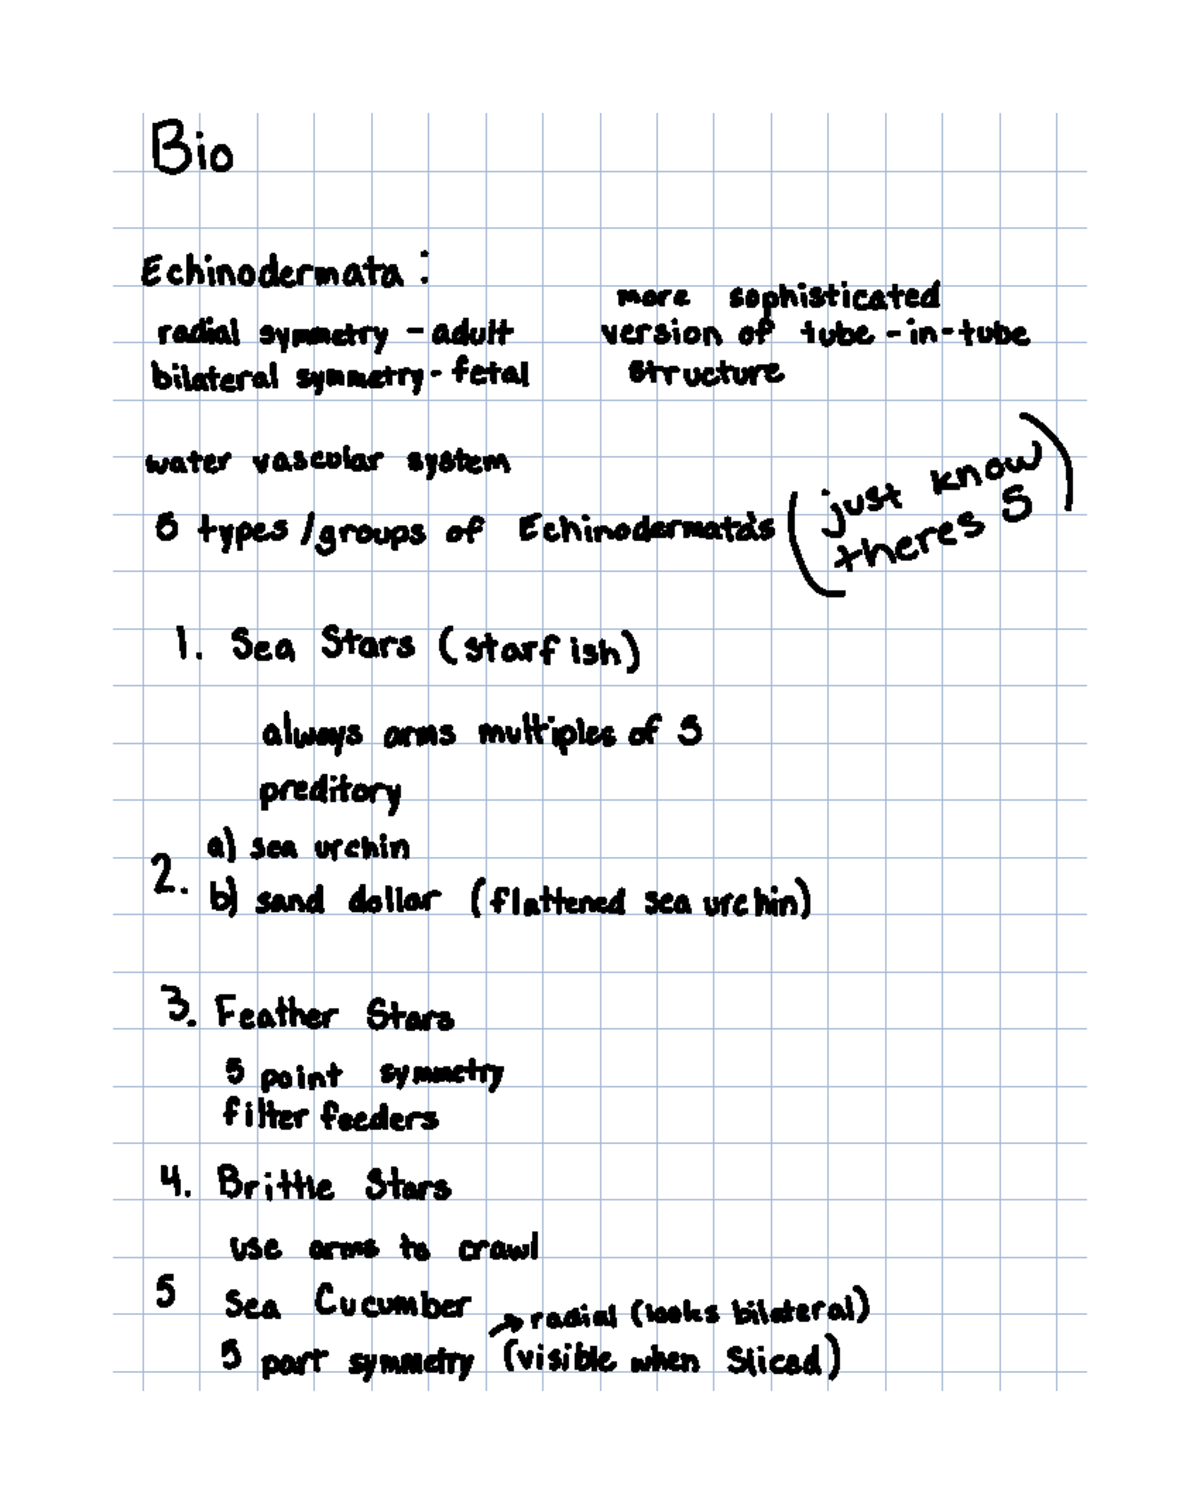 Bio
Echinodermata :
radial symmetry - adult
bilateral symmetry - fetal
more sophisticated
version of tube-in-tube
structure
water vascular system
5 types/groups of Echinodermata's (just know
theres 5)
1. Sea Stars (starfish)
always arms multiples of 5
preditory
2. a) sea urchin
b) sand dollar (flattened sea urchin)
3. Feather Stars
5 point symmetry
filter feeders
4. Brittle Stars
use arms to crawl
5 Sea Cucumber
→ radial (looks bilateral)
5 part symmetry (visible when Sliced)